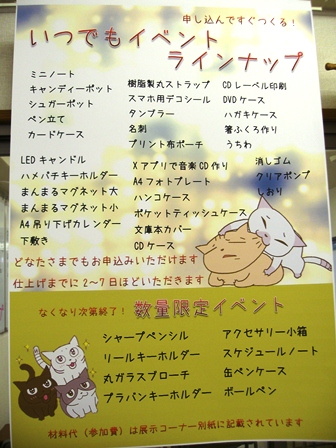 申し込んですぐつくる！
いつでもイベント
ラインナップ
ミニノート
キャンディーポット
シュガーポット
ペン立て
カードケース
樹脂製丸ストラップ
スマホ用デコシール
タンブラー
名刺
プリント布ポーチ
CDレーベル印刷
DVDケース
ハガキケース
箸ふくろ作り
うちわ
LEDキャンドル
ハメパチキーホルダー
まんまるマグネット大
まんまるマグネット小
A4吊り下げカレンダー
下敷き
Xアプリで音楽CD作り
A4フォトプレート
ハンコケース
ポケットティッシュケース
文庫本カバー
CDケース
消しゴム
クリアポンプ
しおり
どなたさまでもお申込みいただけます
仕上げまでに2～7日ほどいただきます
なくなり次第終了！
数量限定イベント
シャープペンシル
リールキーホルダー
丸ガラスブローチ
プラバンキーホルダー
アクセサリー小箱
スケジュールノート
缶ペンケース
ボールペン
材料代（参加費）は展示コーナー別紙に記載されています